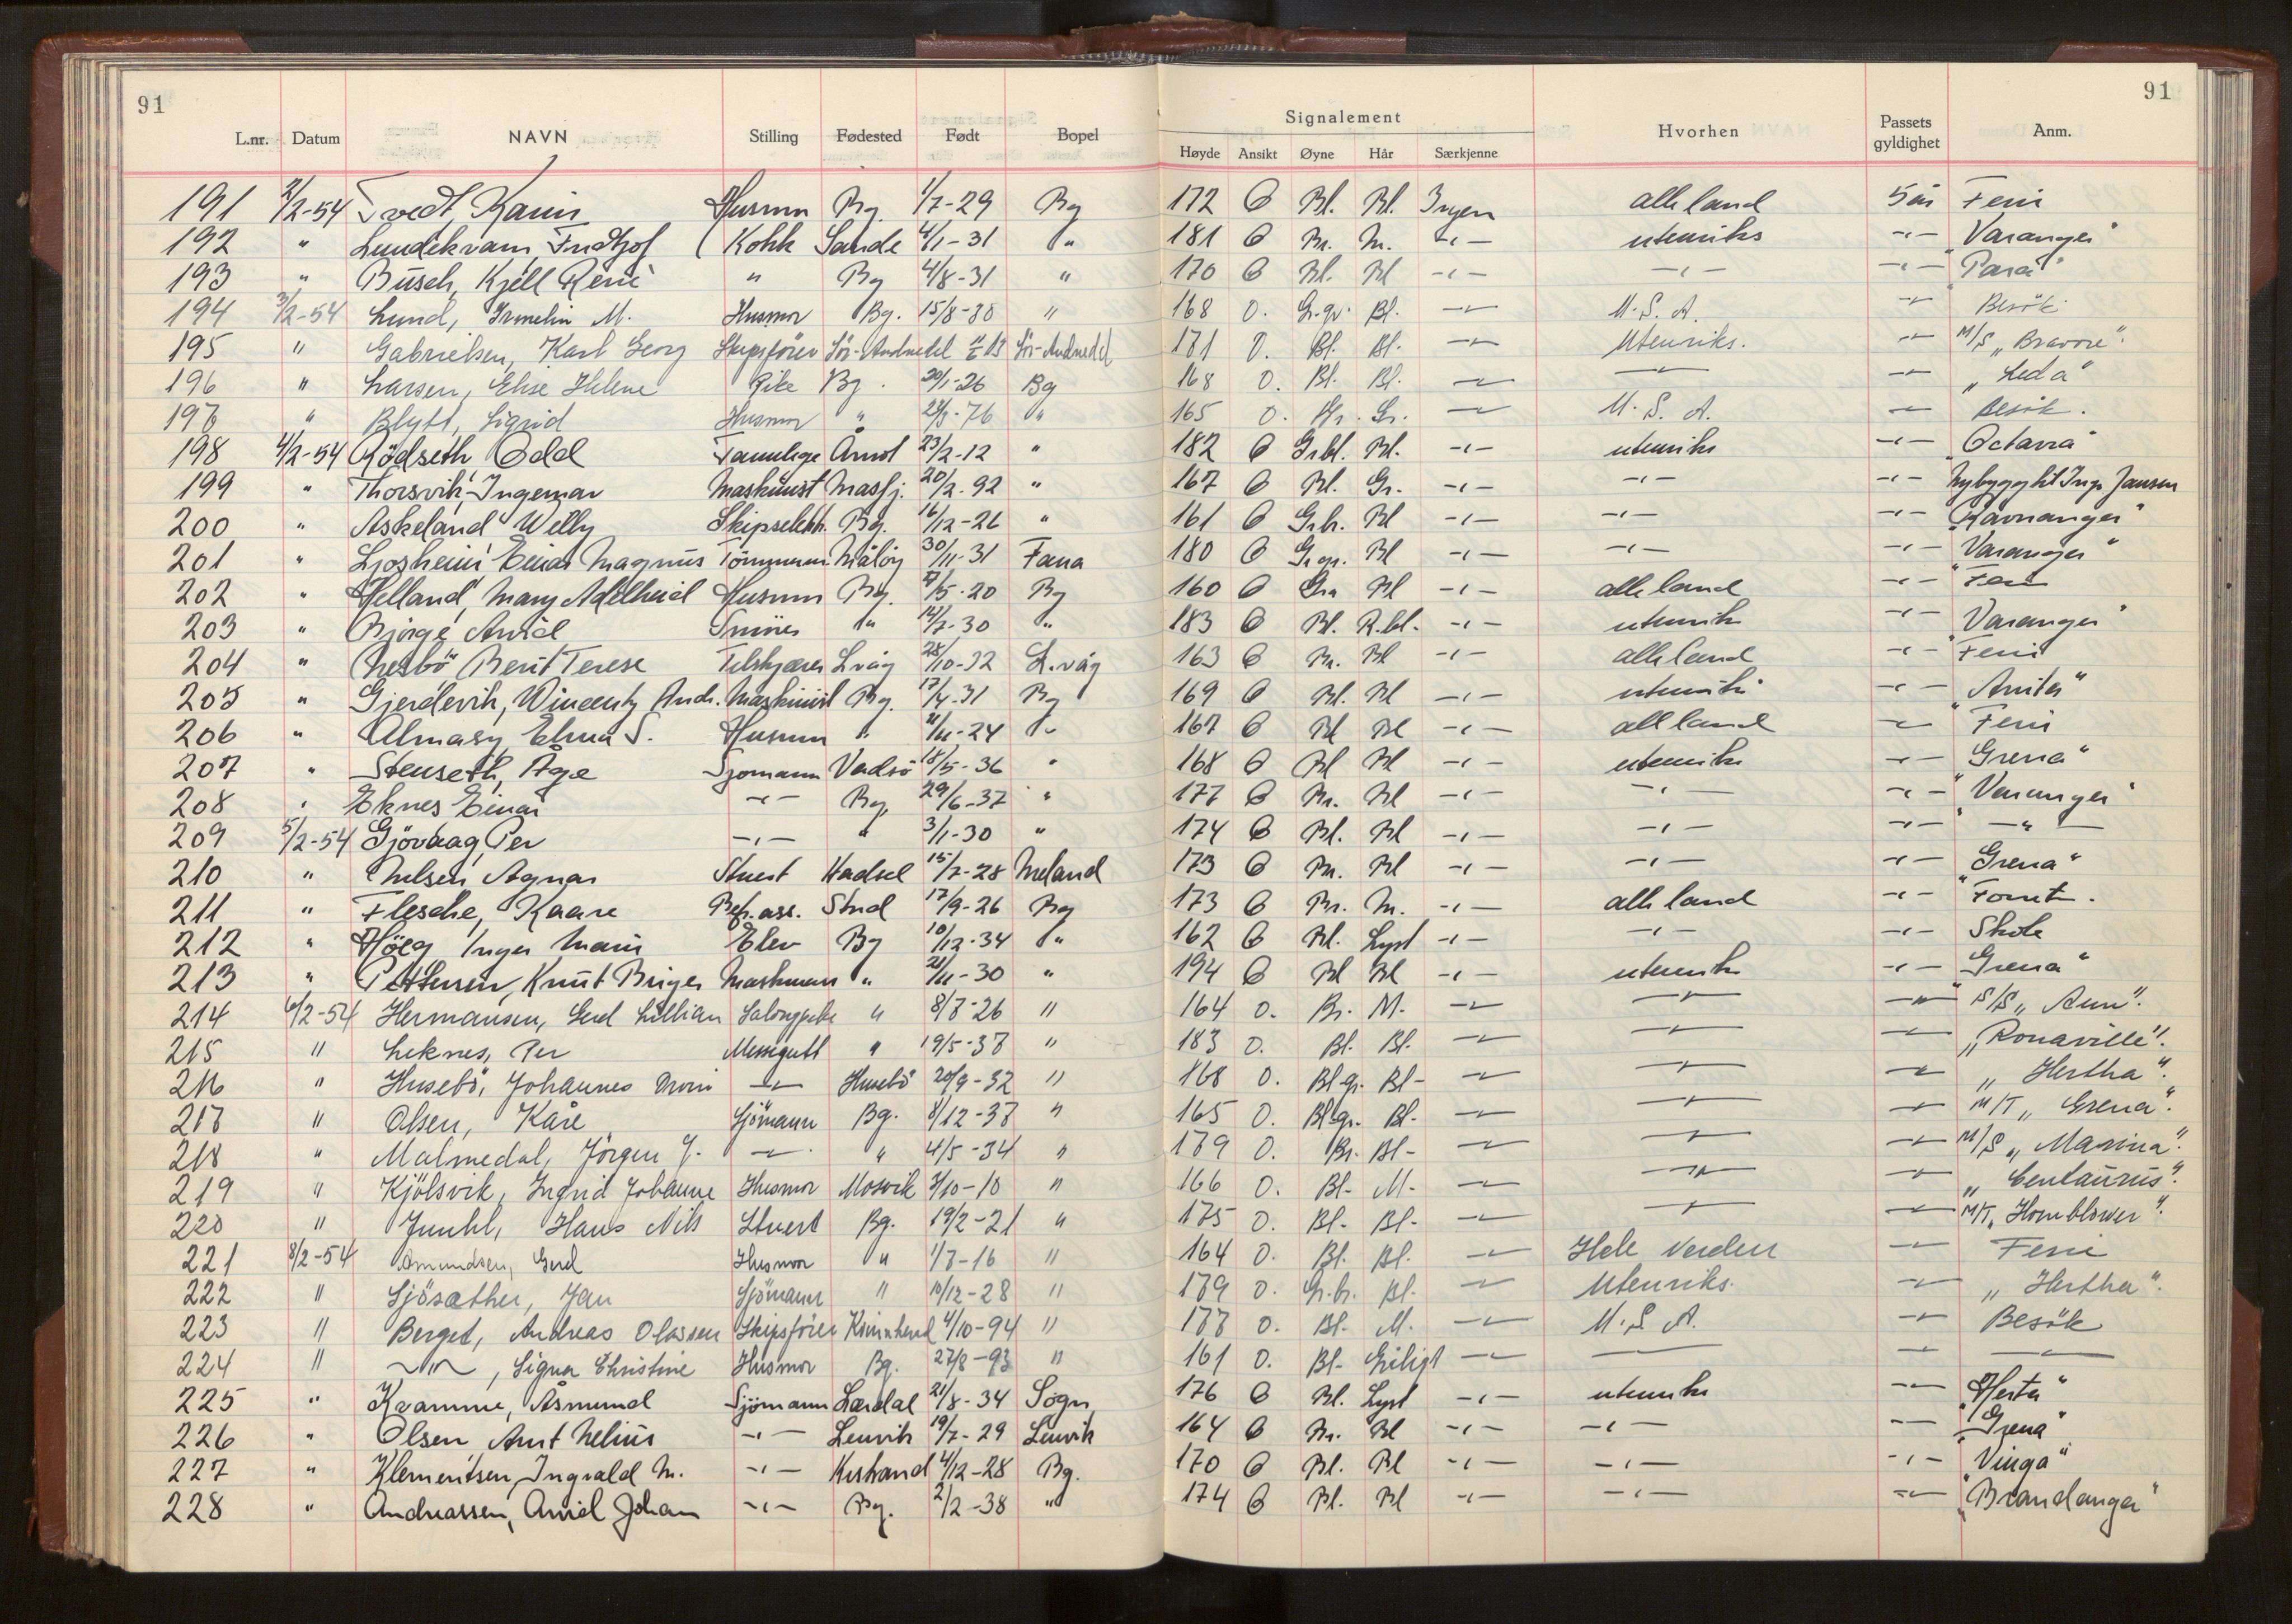 91
91
Signalement
L.nr. Datum NAVN Stilling Fødested Født Bopel Høyde Ansikt Øyne Hår Særkjenne Hvorhen Passets gyldighet Anm.
191 2/2-54 Tvedt, Karin Husmor Bg. 1/7-29 Bg 172 O Bl. Bl. Ingen alle land 5 år Ferie
192 " Lundekvam, Fridtjof Kokk Sande 4/1-31 " 181 O Br. M. -"- utenriks -"- "Varanger"
193 " Busch, Kjell René " Bg 4/8-31 " 170 O Bl. Bl -"- -"- -"- "Para"
194 3/2-54 Lund, Irmelin M. Husmor Bg. 15/8-30 " 168 O. Gr.gr. Bl. -"- U.S.A. -"- Besök
195 " Gabrielsen, Karl Georg Skipsförer Sör-Audnedal Sör-Audnedal 171 O. Bl. Bl. -"- Utenriks. -"- M/S "Bravore".
196 " Larsen, Else Helene Pike Bg. 20/1-26 Bg 168 O. Bl. Bl. -"- -"- -"- "Leda"
197 " Blytt, Sigrid Husmor " 23/3-76 " 165 O. Br. Gr. -"- U.S.A. -"- Besök.
198 4/2-54 Rödseth Odd Tannlege 23/2-12 " 182 O Grbl. Bl. -"- utenriks -"- "Octavia"
199 " Thorsvik, Ingemar Maskinist Masfj. 20/2-92 " 167 O Bl. Gr. -"- -"- -"- Nybygg hk Inge Jansen
200 " Askeland Willy Skipselektr. Bg. 16/12-26 " 161 O Grbr. Bl -"- -"- -"- "Ravnanger"
201 " Ljosheim Einar Magnus Tömmerm. Måløy 30/11-31 Fana 180 O Grgr. Bl -"- -"- -"- "Varanger"
202 " Helland, Mary Adelheid Husmor Bg. 7/5-20 Bg 160 O Gr Bl -"- alle land -"- Ferie
203 " Bjørge, Arvid Smörer " 14/7-30 " 183 O Bl. R.bl. -"- utenriks -"- "Varanger"
204 " Nesbö Berit Terese Tilskjærer L.våg 28/10-32 L.våg 163 O Br. Bl -"- alle land -"- Ferie
205 " Gjerdevik, Wincentz Andr. Maskinist Bg. 17/4-31 Bg 169 O Bl. Bl -"- utenriks -"- "Anita"
206 " Almasy, Elma S. Husmor " 2/11-24 " 167 O Bl Bl -"- alle land -"- Ferie
207 " Stenseth, Åge Sjømann Vadsö 18/5-36 " 168 O Bl Bl -"- utenriks -"- "Grena"
208 " Eknes Einar -"- Bg. 29/6-37 " 177 O Br. Bl -"- -"- -"- "Varanger"
209 5/2-54 Gjövaag, Per -"- " 3/1-30 " 174 O Bl. Bl -"- -"- -"- -"-
210 " Nilsen, Agnar Stuert Hadsel 15/7-28 Meland 173 O Br. Bl -"- -"- -"- "Grena"
211 " Flesche, Kaare Bef.ass. Strd 17/9-26 Bg 173 O Br. M. -"- alle land -"-
212 " Höeg Inger Marie Elev Bg 10/12-34 " 162 O Bl. Lyst -"- -"- -"- Skole
213 " Pettersen, Knut Briger Maskmann " 21/11-30 " 194 O Bl Bl -"- utenriks -"- "Grena"
214 6/2-54 Hermansen, Gerd Lillian Salongpike " 8/7-26 " 164 O. Br. M. -"- -"- -"- S/S "Aun".
215 " Leknes, Per Messegutt " 19/5-37 " 183 O. Bl. Bl. -"- -"- -"- "Ronaville".
216 " Husebö, Johannes Moni -"- Husebö 20/9-32 " 168 O. Bl.gr. Bl- -"- -"- -"- "Hertha".
217 " Olsen, Kåre Sjömann Bg. 8/12-37 " 165 O. Bl.gr. Bl- -"- -"- -"- M/T "Grena".
218 " Malmedal, Jörgen J. -"- " 4/5-34 " 179 O. Br. Bl- -"- -"- -"- M/S "Marina".
219 " Kjölsvik, Ingrid Johanne Husmor Mosvik 3/10-10 " 166 O. Bl- M- -"- -"- -"- "Centaurus".
220 " Juuhl, Hans Nils Stuert Bg. 19/2-21 " 175 O. Bl- Bl- -"- -"- -"- M/T "Hornblower".
221 8/2-54 Amundsen, Gerd Husmor " 1/7-16 " 164 O. Bl. Bl. -"- Hele Verden -"- Ferie
222 " Sjösæther, Jan Sjömann " 10/12-28 " 179 O. Gr.br. Bl. -"- Utenriks. -"- "Hertha".
223 " Berget, Andreas Olassen Skipsförer Kvinnherad 4/10-94 " 177 O. Bl- M. -"- U.S.A. -"- Besök
224 " -"-, Signa Christine Husmor Bg. 27/8-93 " 161 O. Bl- -"- -"- -"- -"-
225 " Kvamme, Åsmund Sjømann Lærdal 21/8-34 Sogn 176 O Bl. Lyst -"- utenriks -"- "Herta"
226 " Olsen, Arnt Nelius -"- Lenvik 19/7-29 Lenvik 164 O Br. Bl -"- -"- -"- "Grena"
227 " Klementsen, Ingvald M. -"- Krstsand 4/12-28 Bg. 170 O Bl. Bl -"- -"- -"- "Vinga"
228 " Andreassen, Arvid Johan -"- Bg. 2/2-38 " 174 O Bl. Bl -"- -"- -"- "Brandanger"